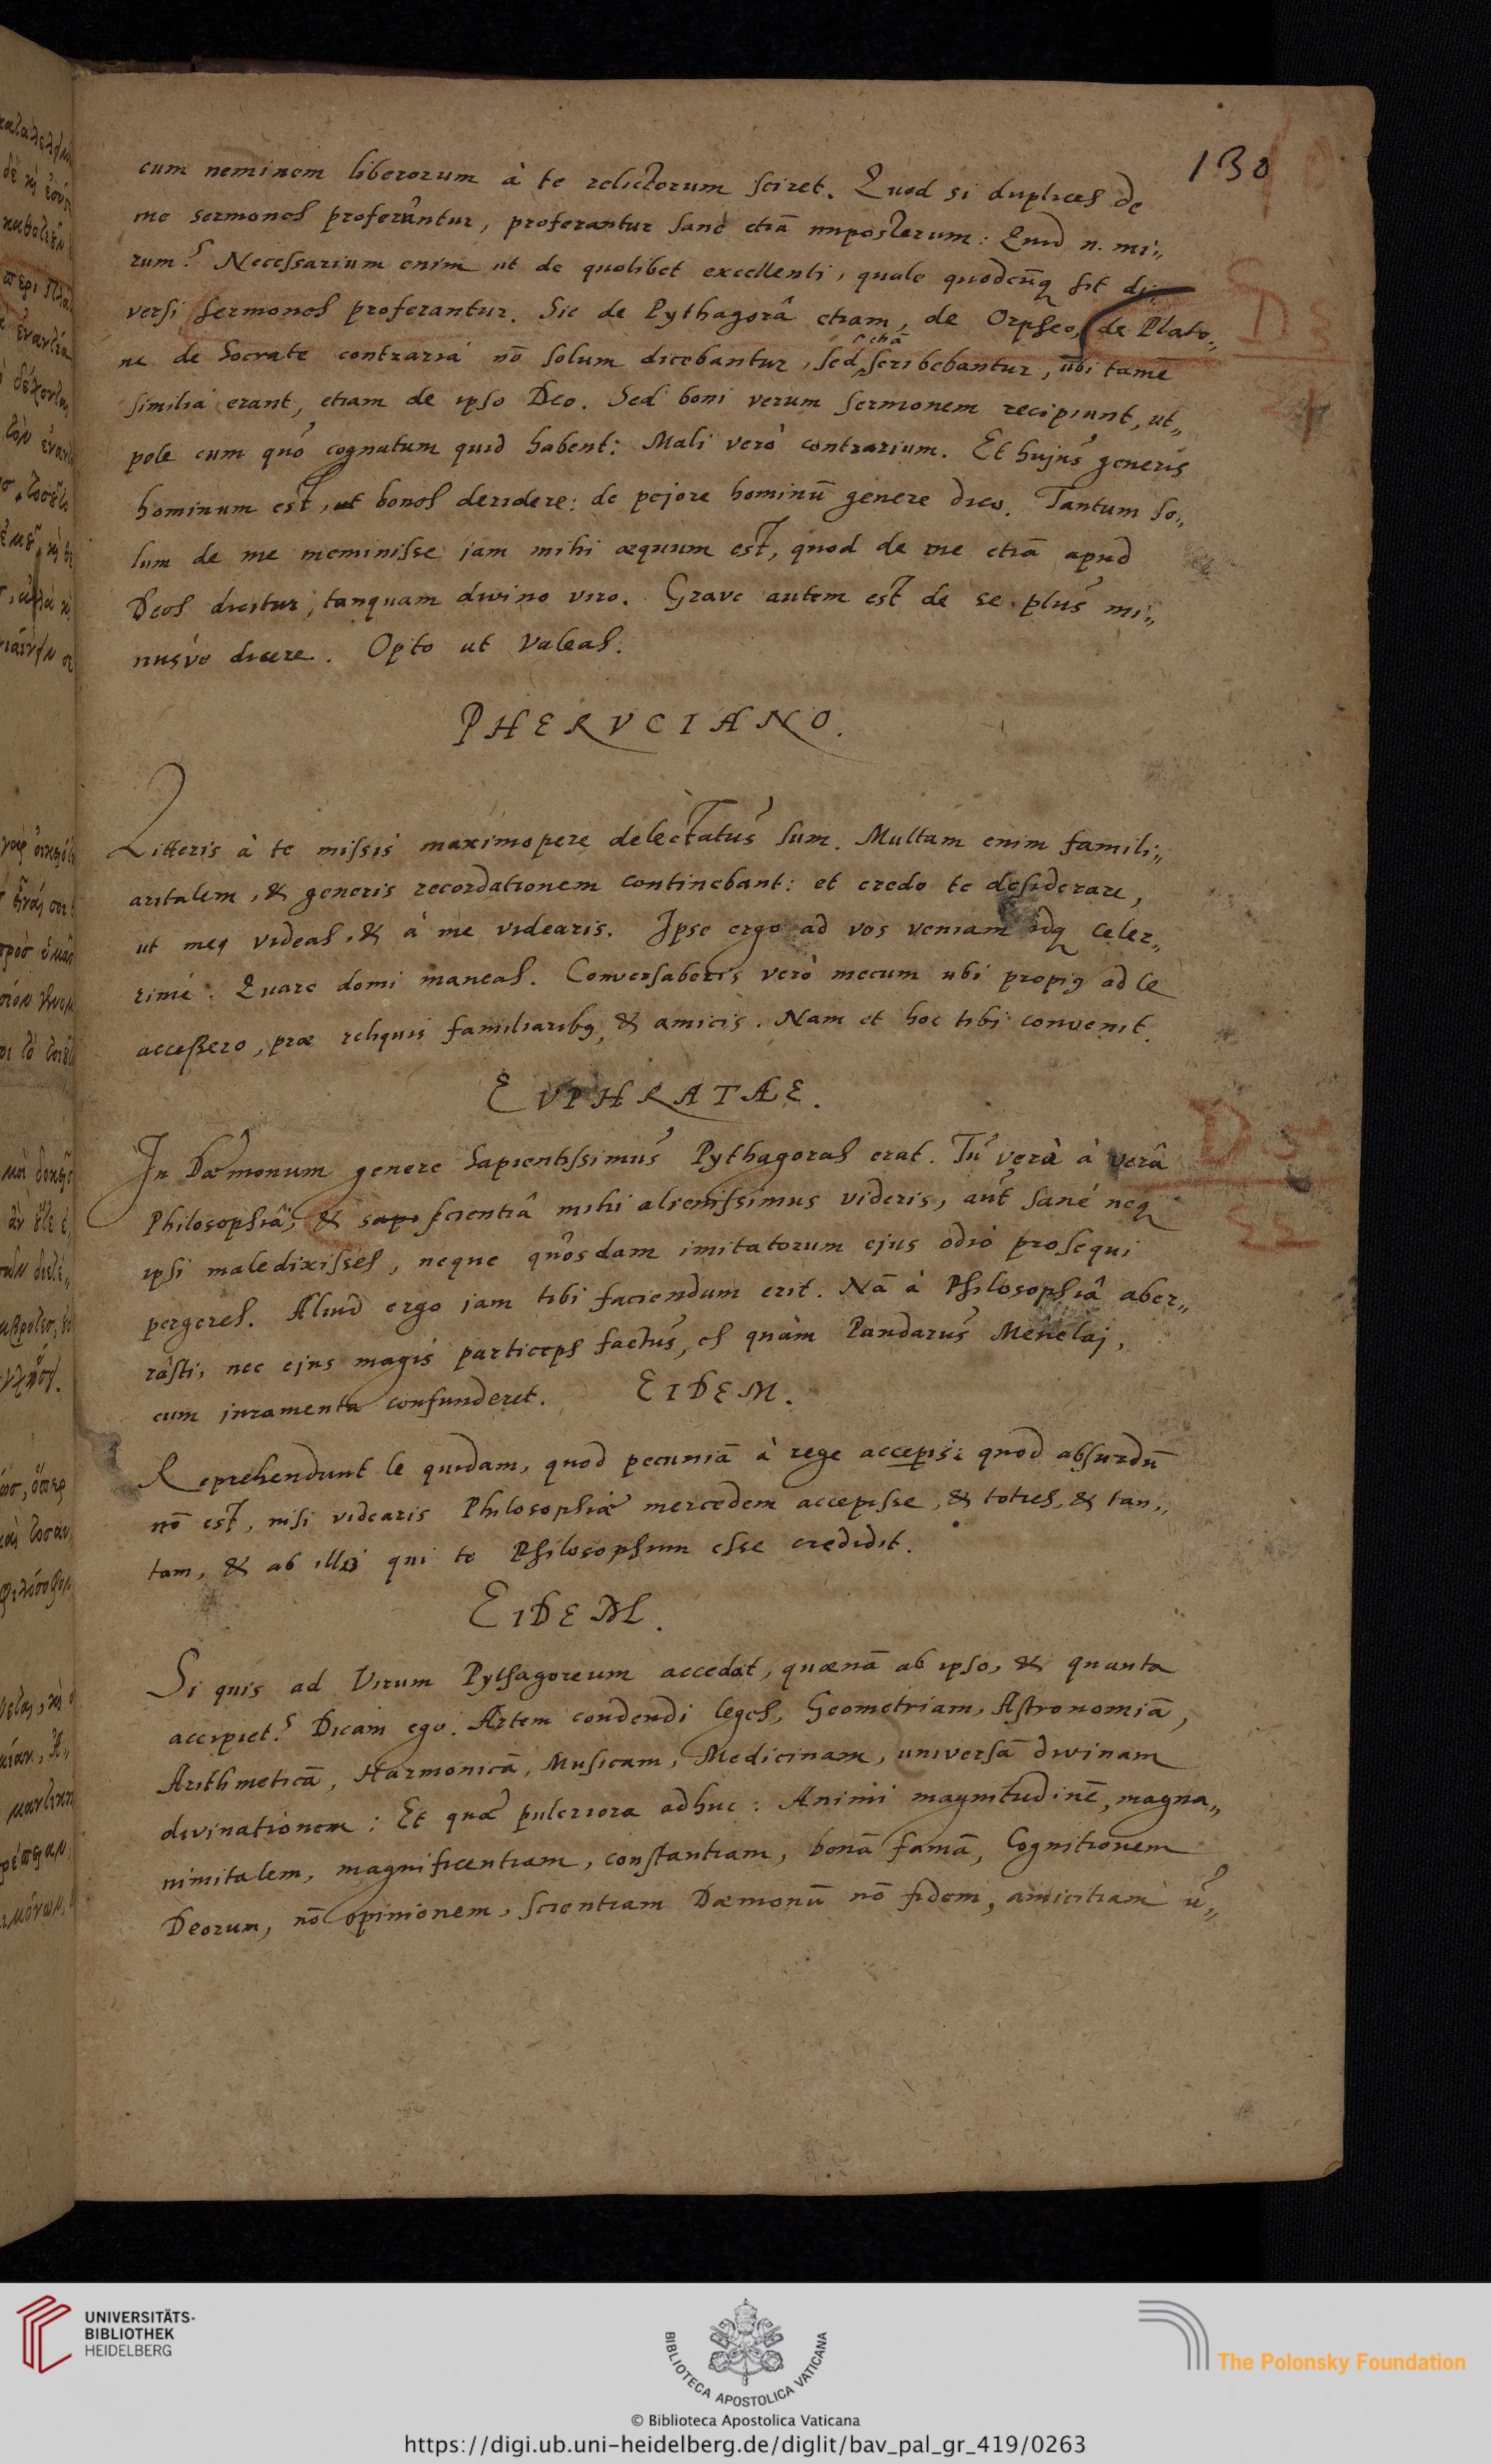 130
cum neminem liberorum à te relictorum sciret. Quod si duplices de
me sermones proferantur, proferantur sanè etiā imposterum: Quid n. mi„
rum? Necessarium enim ut de quolibet excellenti, quale quodcūq sit di„
versi sermones proferantur. Sic de Pythagorâ etiam, de Orpheo, de Plato„
ne de Socrate contraria nō solum dicebantur, sed etiā scribebantur, ubi tamē
similia erant, etiam de ipso Deo. Sed boni verum sermonem recipiunt, ut„
pote cum quō cognatum quid habent: Mali verò contrarium. Et hujus generis
hominum est, ut bonos deridere: de pejore hominū genere dico. Tantum so„
lum de me meminisse jam mihi æquum est, quod de me etiā apud
Deos dicitur, tanquam divino viro. Grave autem est de se plus mi„
nusve dicere. Opto ut Valeas.
PHERVCIANO.
Litteris à te missis maximopere delectatus sum. Multam enim famili„
aritatem, & generis recordationem continebant: et credo te desiderare,
ut meq videas, & à me videaris. Ipse ergo ad vos veniam idq celer„
rimè. Quare domi maneas. Conversaberis verò mecum ubi propiꝰ ad te
accessero, præ reliquis familiaribꝰ, & amicis. Nam et hoc tibi convenit.
EVPHRATÆ.
In Dæmonum genere Sapientissimus Pythagoras erat. Tu verò à verâ
Philosophiâ, & scientiâ mihi alienissimus videris, aut sanè neq
ipsi maledixisses, neque quosdam imitatorum ejus odiò prosequi
pergeres. Aliud ergo jam tibi faciendum erit. Nā à Philosophiâ aber„
râsti, nec ejus magis particeps factus, es quàm Pandarus Menelaj,
cum juramenta confunderet. EIDEM.
Reprehendunt te quidam, quod pecuniā à rege accepis: quod absurdū
nō est, nisi videaris Philosophiæ mercedem accepisse, & toties, & tan„
tam, & ab illo qui te Philosophum esse credidit.
EIDEM.
Si quis ad Virum Pythagoreum accedat, quænā ab ipso, & quanta
accipiet? Dicam ego. Artem condendi leges, Geometriam, Astronomiā,
Arithmeticā, Harmonicā, Musicam, Medicinam, universā divinam
divinationem: Et quæ pulcriora adhuc: Animi magnitudinē, magna„
nimitatem, magnificentiam, constantiam, bonā famā, Cognitionem
Deorum, nō opinionem, scientiam Dæmonū nō fidem, amicitiam u„
UNIVERSITÄTS-
BIBLIOTHEK
HEIDELBERG
BIBLIOTECA APOSTOLICA VATICANA
The Polonsky Foundation
© Biblioteca Apostolica Vaticana
https://digi.ub.uni-heidelberg.de/diglit/bav_pal_gr_419/0263